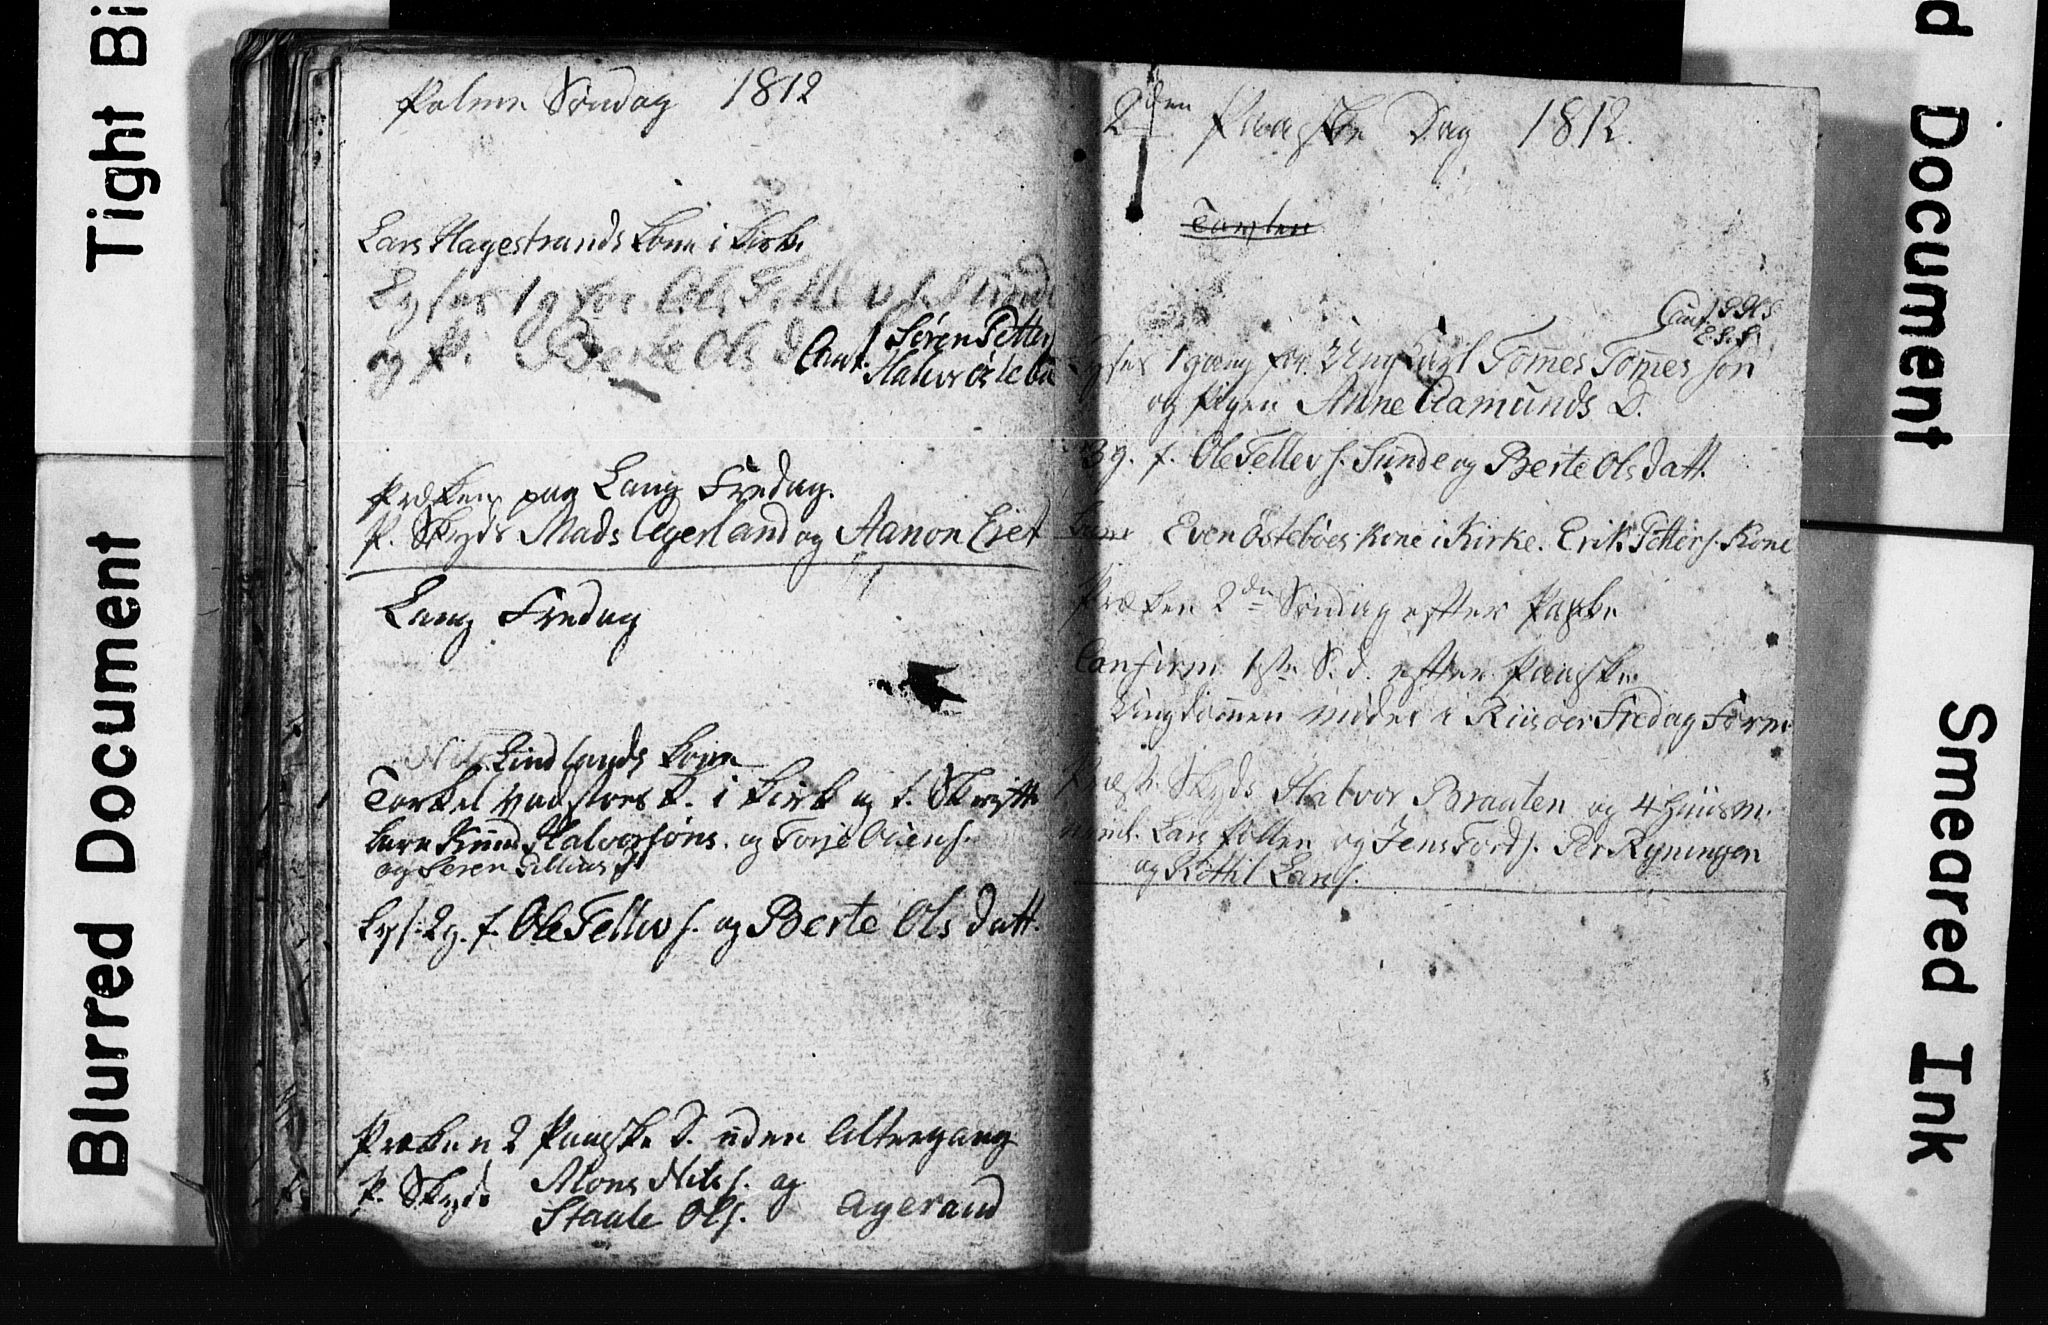 Tight Bi
Blurred Document
Palme Søndag 1812
Lars Hagestrands kone i kirke
Lyses 1 g for Ole Tellevs. Sunde
og P. Berte Ols d
Caut. Søren Petter
Halvor Östebö
Præken paa Lang Fredag.
P. Skyds Mads Agerland og Aanon Eiet
Lang Fredag
Lindlands kone
Torkel k. i kirke og t. Skrifte
Knud Halvorsöns. og Torje Oliens.
og Søren
Lys. 2 g. f. Ole Tellevs. og Berte Ols datt.
Præken 2 Paaske D. uden Altergang
P. Skyds Mons Nils. og
Staale Ols. Agerland
2den Paaske Dag 1812.
Caut.
E. S. S.
Lyses 1 gang for Ungkarl Tomes Tomes sön
og Pigen Anne Aamunds D.
3 g. f. Ole Tellevs. Sunde og Berte Olsdatt.
Even Östeböes kone i Kirke. Erik Petters. Kone
Præken 2den Søndag efter Paaske
Confirm. 1ste S. d. efter Paaske.
Ungdommen möder i Riisöer Fredag Form
Præst. Skyds Halvor Braaten og 4 Huusm.
neml. Lars og Jens Tords. Per Ryningen
og Kittil Lars.
d Document
Smeared Ink